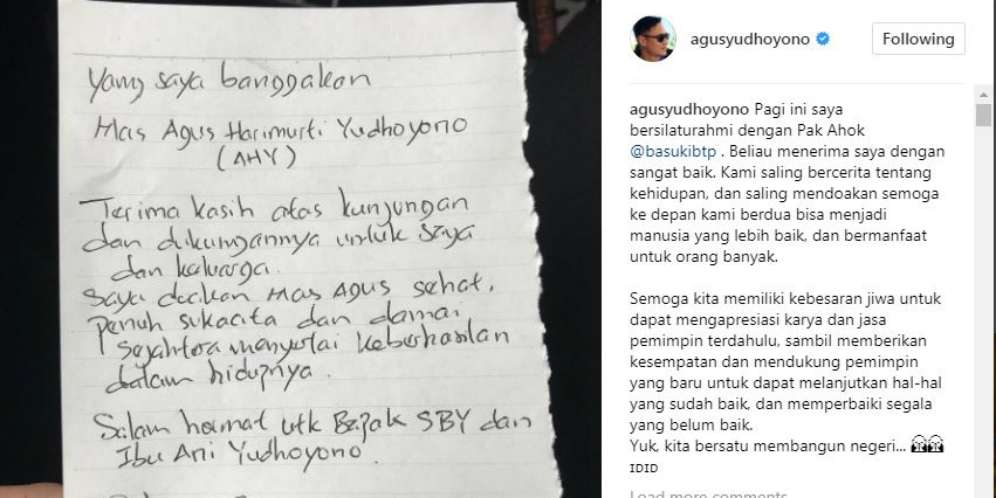 Yang saya banggakan
Mas Agus Harimurti Yudhoyono
(AHY)
Terima kasih atas kunjungan
dan dukungannya untuk saya
dan keluarga.
Saya doakan Mas Agus sehat,
penuh sukacita dan damai
sejahtera menyertai keberhasilan
dalam hidupnya.
Salam hormat utk Bapak SBY dan
Ibu Ani Yudhoyono.
agusyudhoyono
Following
agusyudhoyono Pagi ini saya
bersilaturahmi dengan Pak Ahok
@basukibtp . Beliau menerima saya dengan
sangat baik. Kami saling bercerita tentang
kehidupan, dan saling mendoakan semoga
ke depan kami berdua bisa menjadi
manusia yang lebih baik, dan bermanfaat
untuk orang banyak.
Semoga kita memiliki kebesaran jiwa untuk
dapat mengapresiasi karya dan jasa
pemimpin terdahulu, sambil memberikan
kesempatan dan mendukung pemimpin
yang baru untuk dapat melanjutkan hal-hal
yang sudah baik, dan memperbaiki segala
yang belum baik.
Yuk, kita bersatu membangun negeri...
IDID
Load more comments